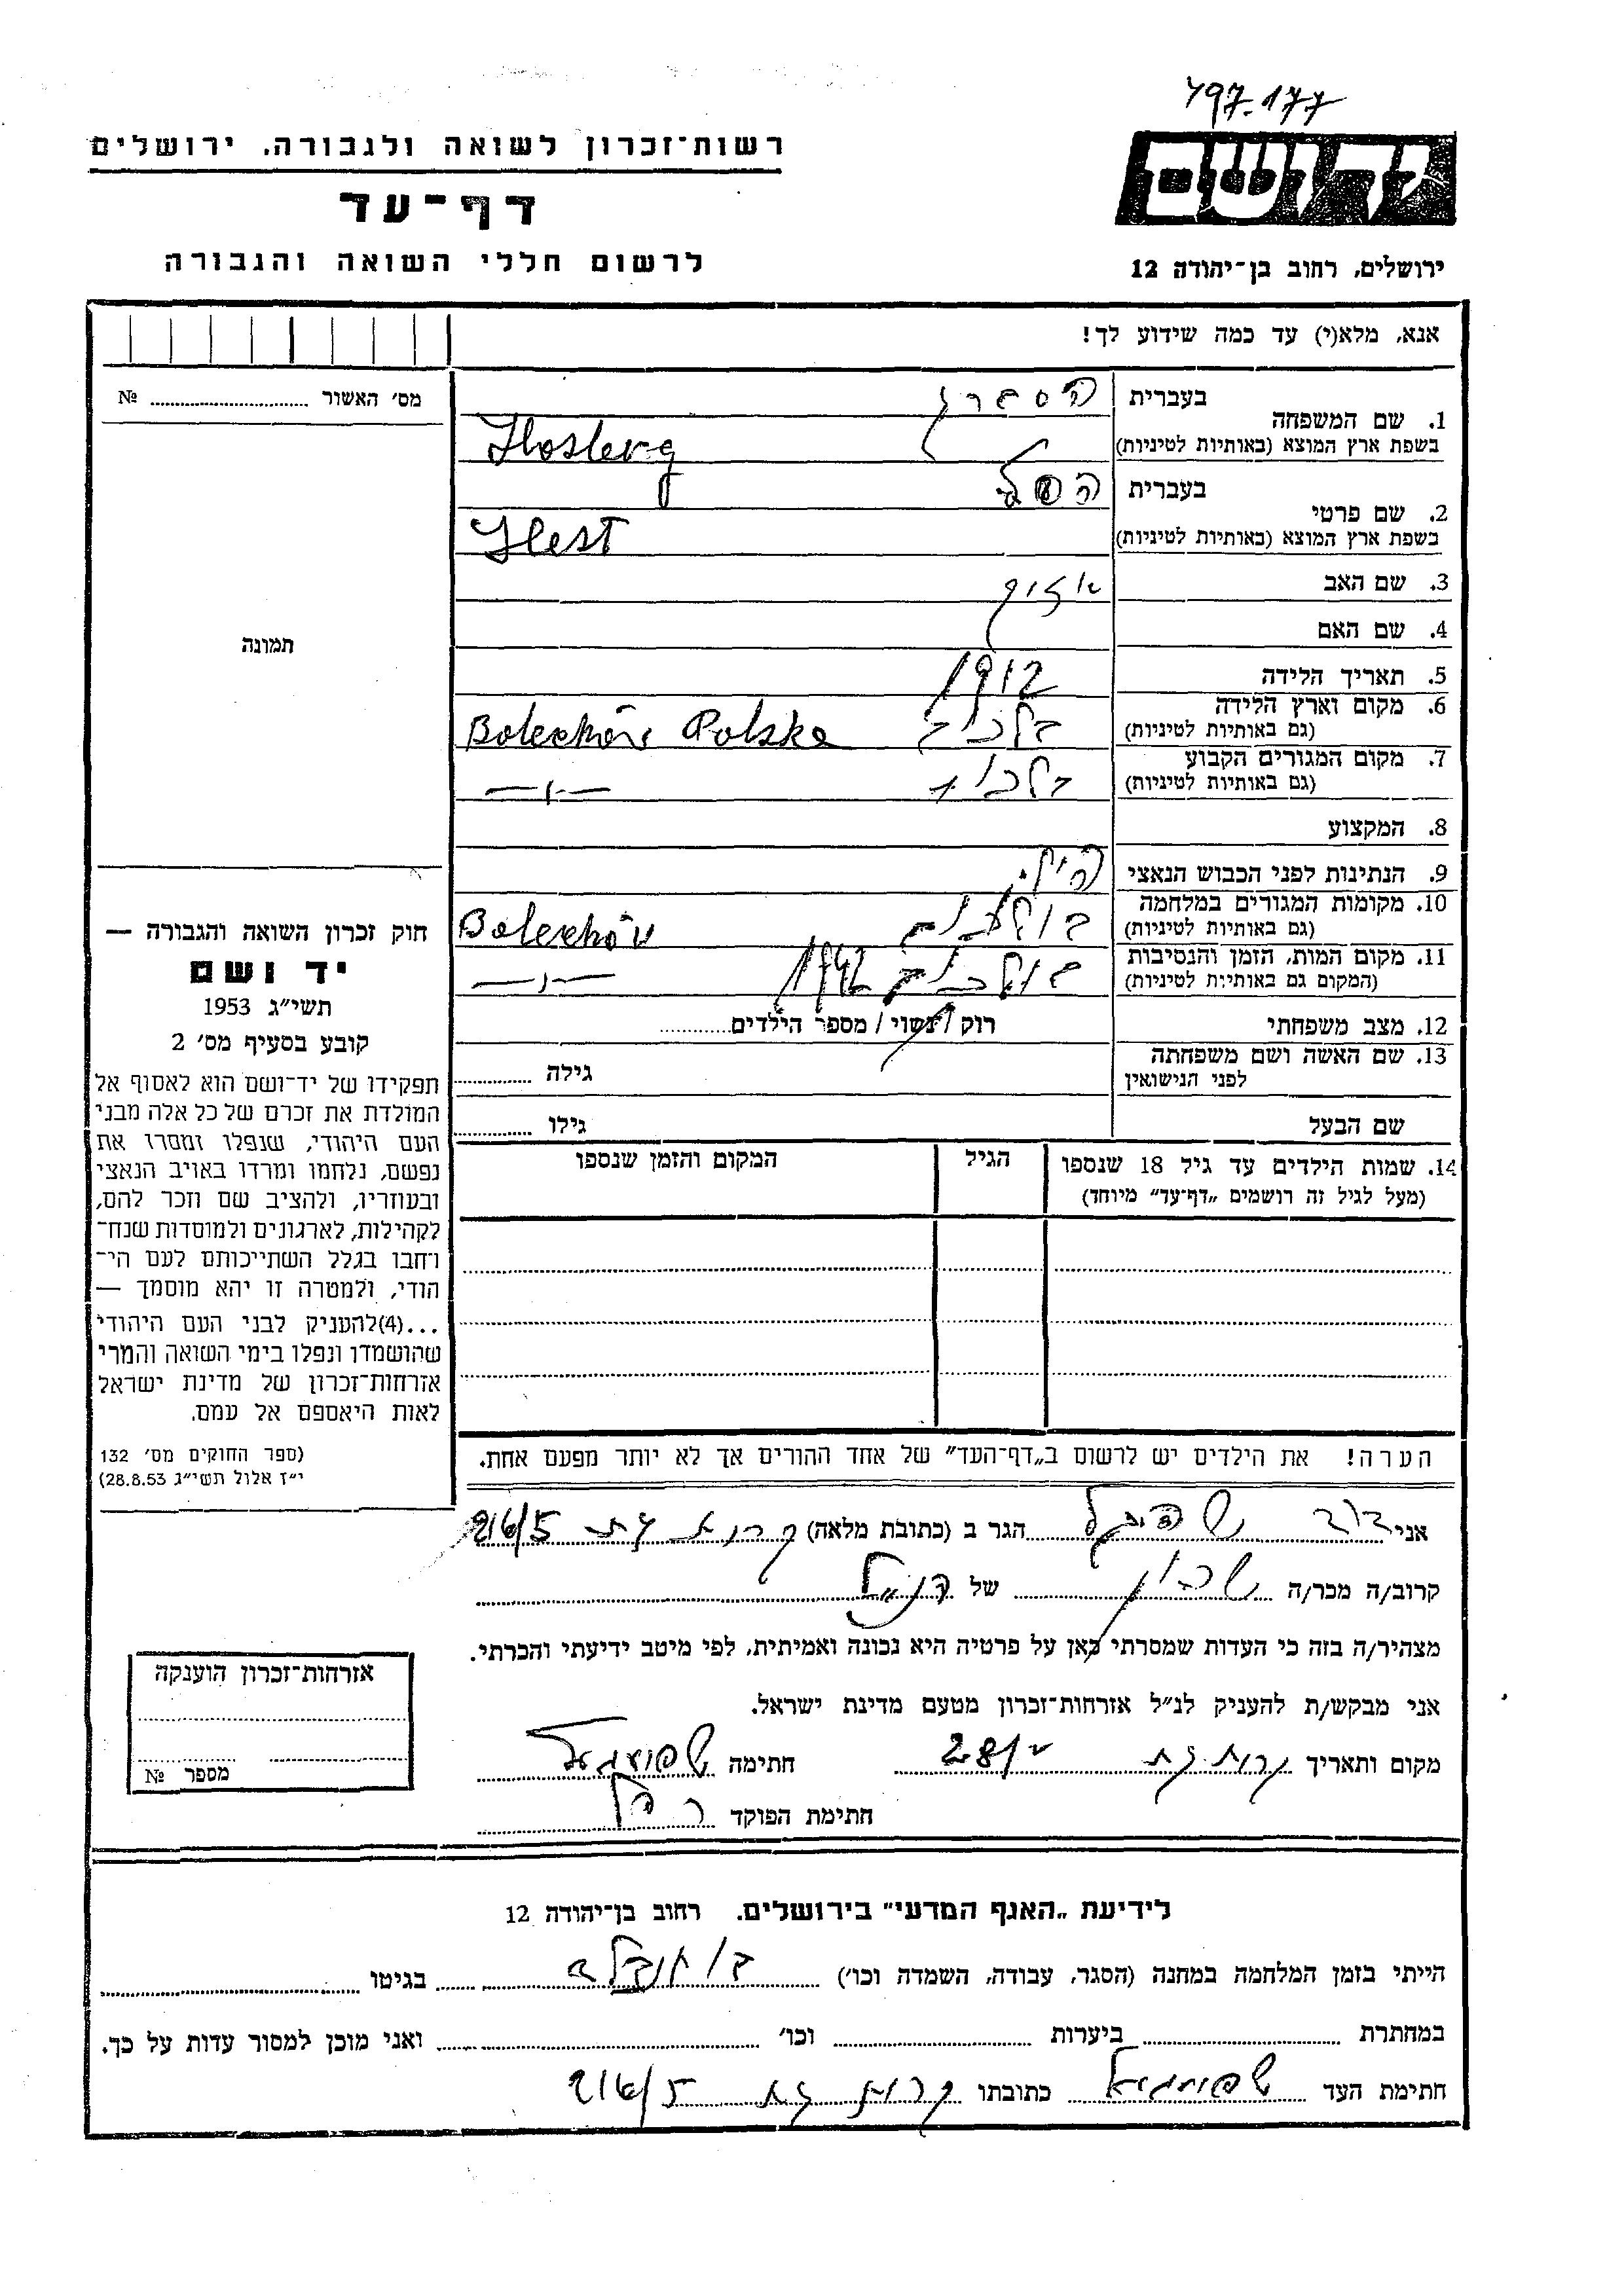 797.177
רשות־זכרון לשואה ולגבורה. ירושלים
דף־עד
לרשום חללי השואה והגבורה
יד ושם
ירושלים, רחוב בן־יהודה 12
אנא, מלא(י) עד כמה שידוע לך!
מס׳ האשור № 
תמונה
חוק זכרון השואה והגבורה —
יד ושם
תשי״ג 1953
קובע בסעיף מס׳ 2
תפקידו של יד־ושם הוא לאסוף אל
המולדת את זכרם של כל אלה מבני
העם היהודי, שנפלו ומסרו את
נפשם, נלחמו ומרדו באויב הנאצי
ובעוזריו, ולהציב שם וזכר להם,
לקהילות, לארגונים ולמוסדות שנח־
רבו בגלל השתייכותם לעם הי־
הודי, ולמטרה זו יהא מוסמך —
...(4)להעניק לבני העם היהודי
שהושמדו ונפלו בימי השואה והמרי
אזרחות־זכרון של מדינת ישראל
לאות היאספם אל עמם.
(ספר החוקים מס׳ 132
י״ז אלול תשי״ג 28.8.53)
1. שם המשפחה בעברית
בשפת ארץ המוצא (באותיות לטיניות)
2. שם פרטי בעברית
בשפת ארץ המוצא (באותיות לטיניות)
3. שם האב
4. שם האם
5. תאריך הלידה 1912
6. מקום וארץ הלידה
(גם באותיות לטיניות) Bolechów Polska
7. מקום המגורים הקבוע
(גם באותיות לטיניות)
8. המקצוע
9. הנתינות לפני הכבוש הנאצי
10. מקומות המגורים במלחמה
(גם באותיות לטיניות) Bolechów
11. מקום המות, הזמן והנסיבות 1942
(המקום גם באותיות לטיניות)
12. מצב משפחתי רוק / נשוי / מספר הילדים
13. שם האשה ושם משפחתה
לפני הנישואין גילה
שם הבעל גילו
14. שמות הילדים עד גיל 18 שנספו הגיל המקום והזמן שנספו
(מעל לגיל זה רושמים „דף־עד״ מיוחד)
הערה! את הילדים יש לרשום ב„דף־העד״ של אחד ההורים אך לא יותר מפעם אחת.
אני דוב הגר ב (כתובת מלאה) קרית גת 216/5
קרוב/ה מכר/ה שכן של הנ״ל
מצהיר/ה בזה כי העדות שמסרתי כאן על פרטיה היא נכונה ואמיתית, לפי מיטב ידיעתי והכרתי.
אני מבקש/ת להעניק לנ״ל אזרחות־זכרון מטעם מדינת ישראל.
מקום ותאריך קרית גת חתימה
חתימת הפוקד
אזרחות־זכרון הוענקה
מספר №
לידיעת „האגף המדעי״ בירושלים. רחוב בן־יהודה 12
הייתי בזמן המלחמה במחנה (הסגר, עבודה, השמדה וכו׳) בגיטו
במחתרת ביערות וכו׳ ואני מוכן למסור עדות על כך.
חתימת העד כתובתו קרית גת 216/5